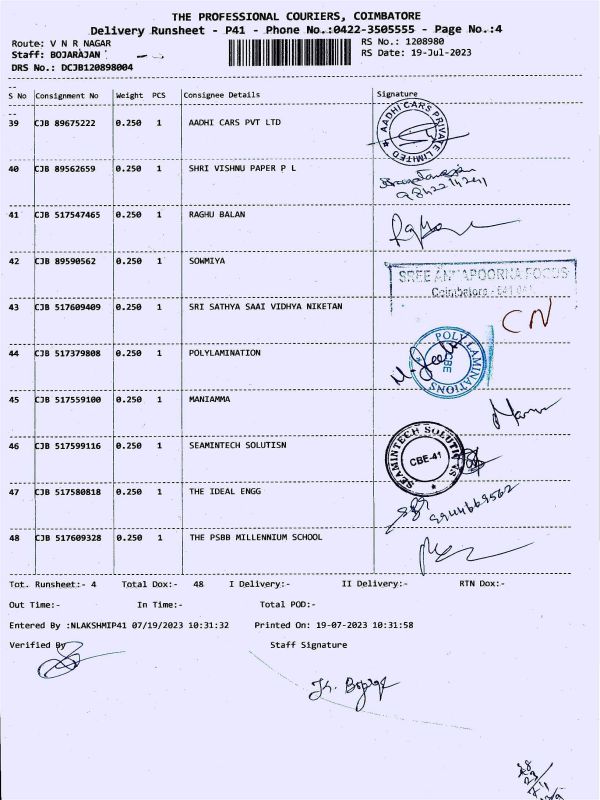 THE PROFESSIONAL COURIERS, COIMBATORE
Delivery Runsheet - P41 - Phone No.:0422-3505555 - Page No.:4
Route: V N R NAGAR RS No.: 1208980
Staff: BOJARAJAN RS Date: 19-Jul-2023
DRS No.: DCJB120898004
S No Consignment No Weight PCS Consignee Details Signature
39 CJB 89675222 0.250 1 AADHI CARS PVT LTD
AADHI CARS PRIVATE LIMITED
40 CJB 89562659 0.250 1 SHRI VISHNU PAPER P L
41 CJB 517547465 0.250 1 RAGHU BALAN
42 CJB 89590562 0.250 1 SOWMIYA
SREE ANNAPOORNA FOODS
Coimbatore - 641 041
43 CJB 517609409 0.250 1 SRI SATHYA SAAI VIDHYA NIKETAN
CN
44 CJB 517379808 0.250 1 POLYLAMINATION
POLY LAMINATIONS
CBE
45 CJB 517559100 0.250 1 MANIAMMA
46 CJB 517599116 0.250 1 SEAMINTECH SOLUTISN
SEAMINTECH SOLUTIONS
CBE-41
47 CJB 517580818 0.250 1 THE IDEAL ENGG
9944669562
48 CJB 517609328 0.250 1 THE PSBB MILLENNIUM SCHOOL
Tot. Runsheet:- 4 Total Dox:- 48 I Delivery:- II Delivery:- RTN Dox:-
Out Time:- In Time:- Total POD:-
Entered By :NLAKSHMIP41 07/19/2023 10:31:32 Printed On: 19-07-2023 10:31:58
Verified By Staff Signature